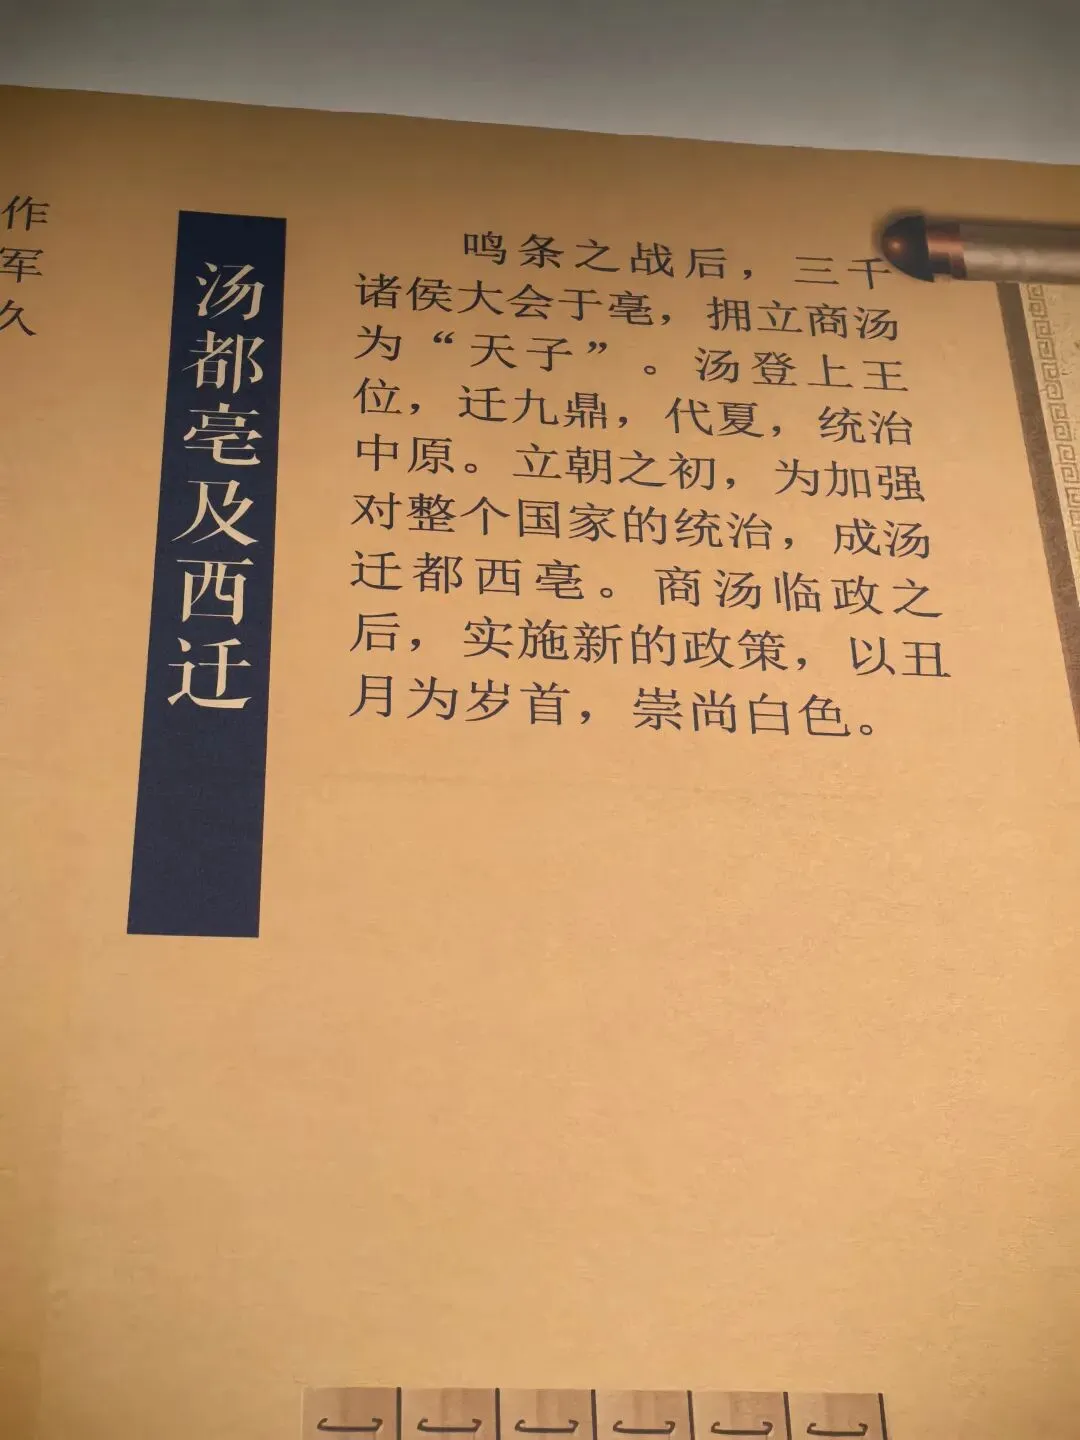 作
军
久
汤都亳及西迁
鸣条之战后，三千
诸侯大会于亳，拥立商汤
为“天子”。汤登上王
位，迁九鼎，代夏，统治
中原。立朝之初，为加强
对整个国家的统治，成汤
迁都西亳。商汤临政之
后，实施新的政策，以丑
月为岁首，崇尚白色。